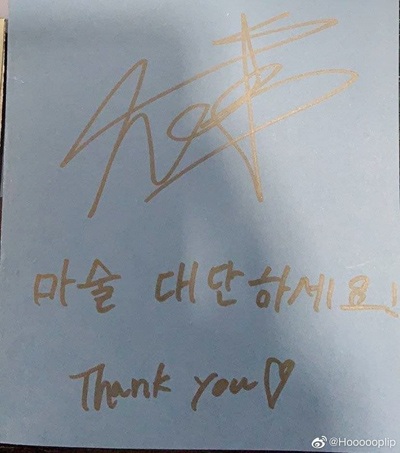 마술 대단하세요!
Thank you♡
@Hoooooplip